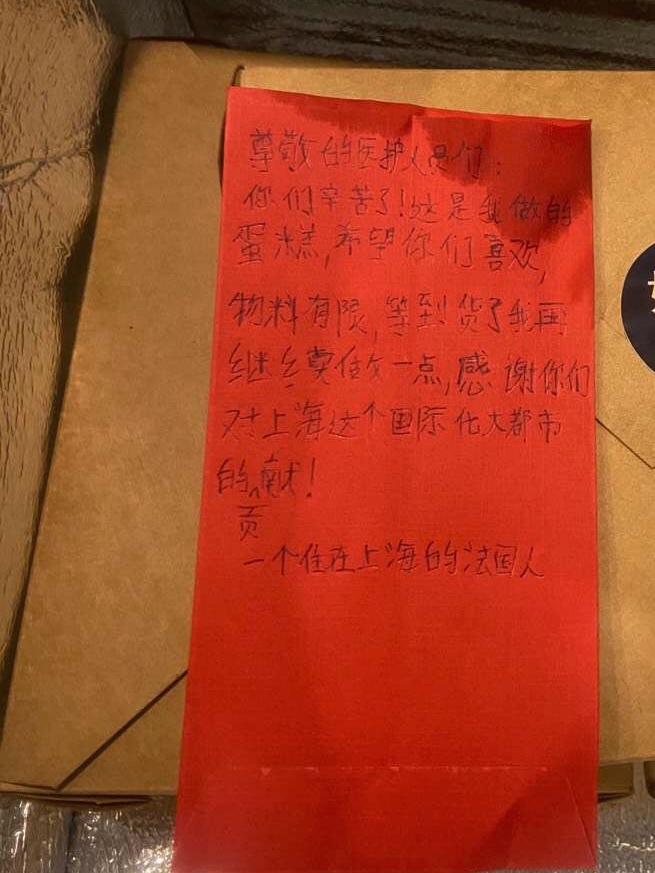 尊敬的医护人员们：
你们辛苦了！这是我做的
蛋糕，希望你们喜欢，
物料有限，等到货了我再
继续做一点，感谢你们
对上海这个国际化大都市
的贡献！
一个住在上海的法国人